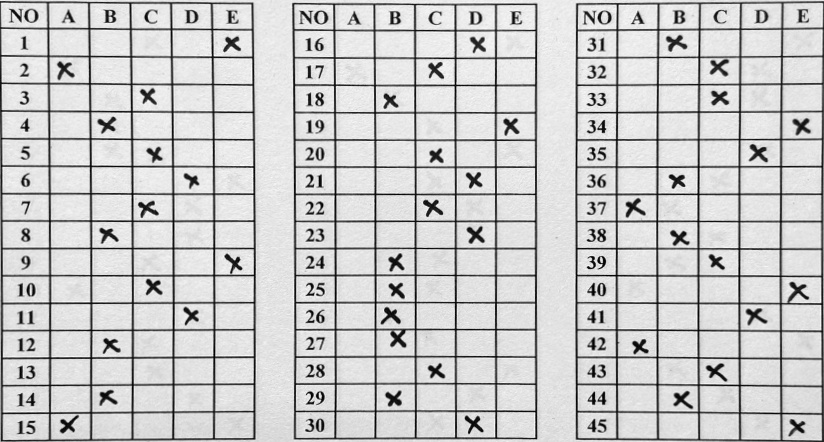 NO A B C D E
1 X
2 X
3 X
4 X
5 X
6 X
7 X
8 X
9 X
10 X
11 X
12 X
13
14 X
15 X
NO A B C D E
16 X
17 X
18 X
19 X
20 X
21 X
22 X
23 X
24 X
25 X
26 X
27 X
28 X
29 X
30 X
NO A B C D E
31 X
32 X
33 X
34 X
35 X
36 X
37 X
38 X
39 X
40 X
41 X
42 X
43 X
44 X
45 X